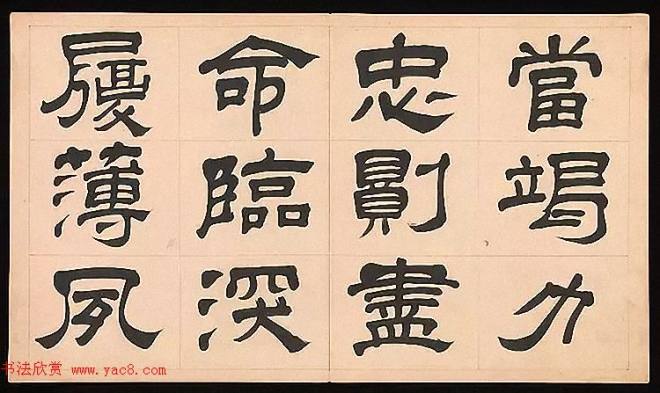 當竭力
忠則盡
命臨深
履薄夙
书法欣赏 www.yac8.com